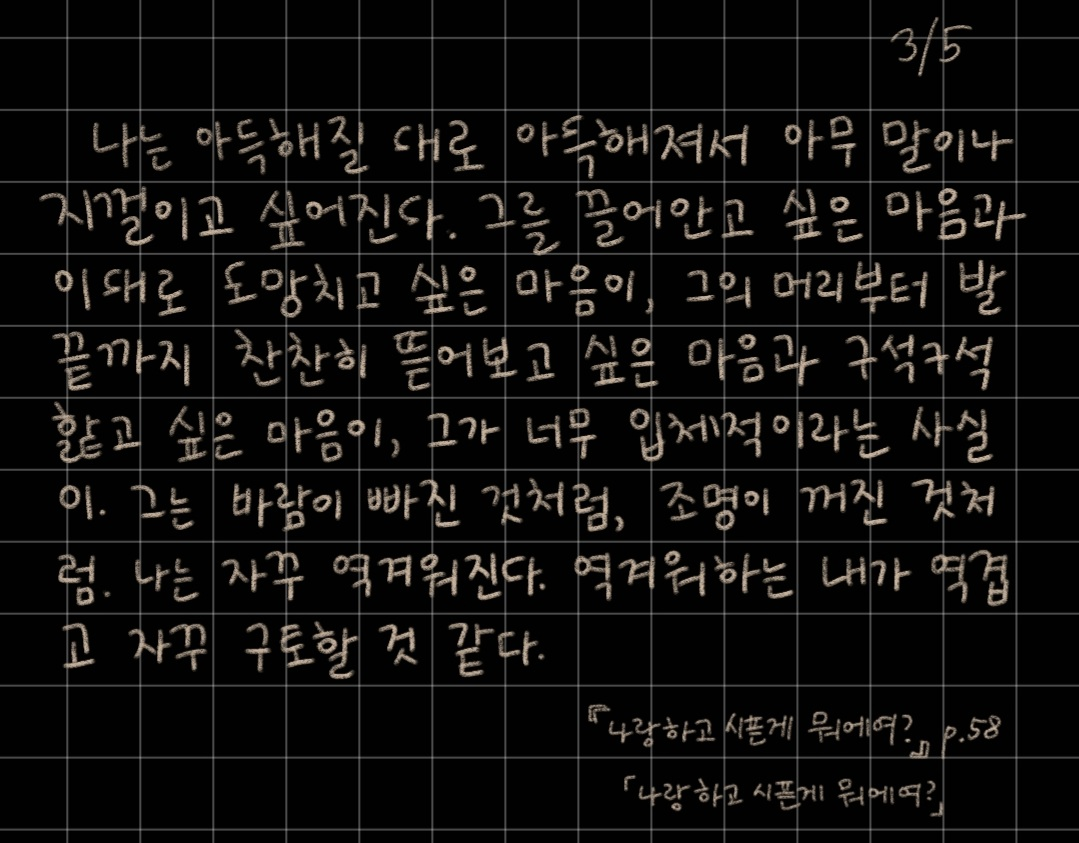 3/5
나는 아득해질 대로 아득해져서 아무 말이나
지껄이고 싶어진다. 그를 끌어안고 싶은 마음과
이대로 도망치고 싶은 마음이, 그의 머리부터 발
끝까지 찬찬히 뜯어보고 싶은 마음과 구석구석
핥고 싶은 마음이, 그가 너무 입체적이라는 사실
이. 그는 바람이 빠진 것처럼, 조명이 꺼진 것처
럼. 나는 자꾸 역겨워진다. 역겨워하는 내가 역겹
고 자꾸 구토할 것 같다.
『나랑하고 시픈게 뭐에여?』 p.58
「나랑하고 시픈게 뭐에여?」